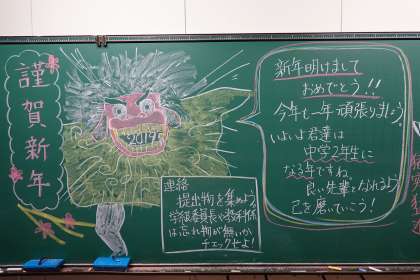 謹賀新年
2019
新年明けまして
おめでとう!!
今年も一年頑張りましょう。
いよいよ君達は
中学2年生に
なる年ですね。
良い先輩となれるよう
己を磨いていこう!
連絡
提出物を集めよう。
学級委員長や教科係
は忘れ物が無いか
チェックせよ!